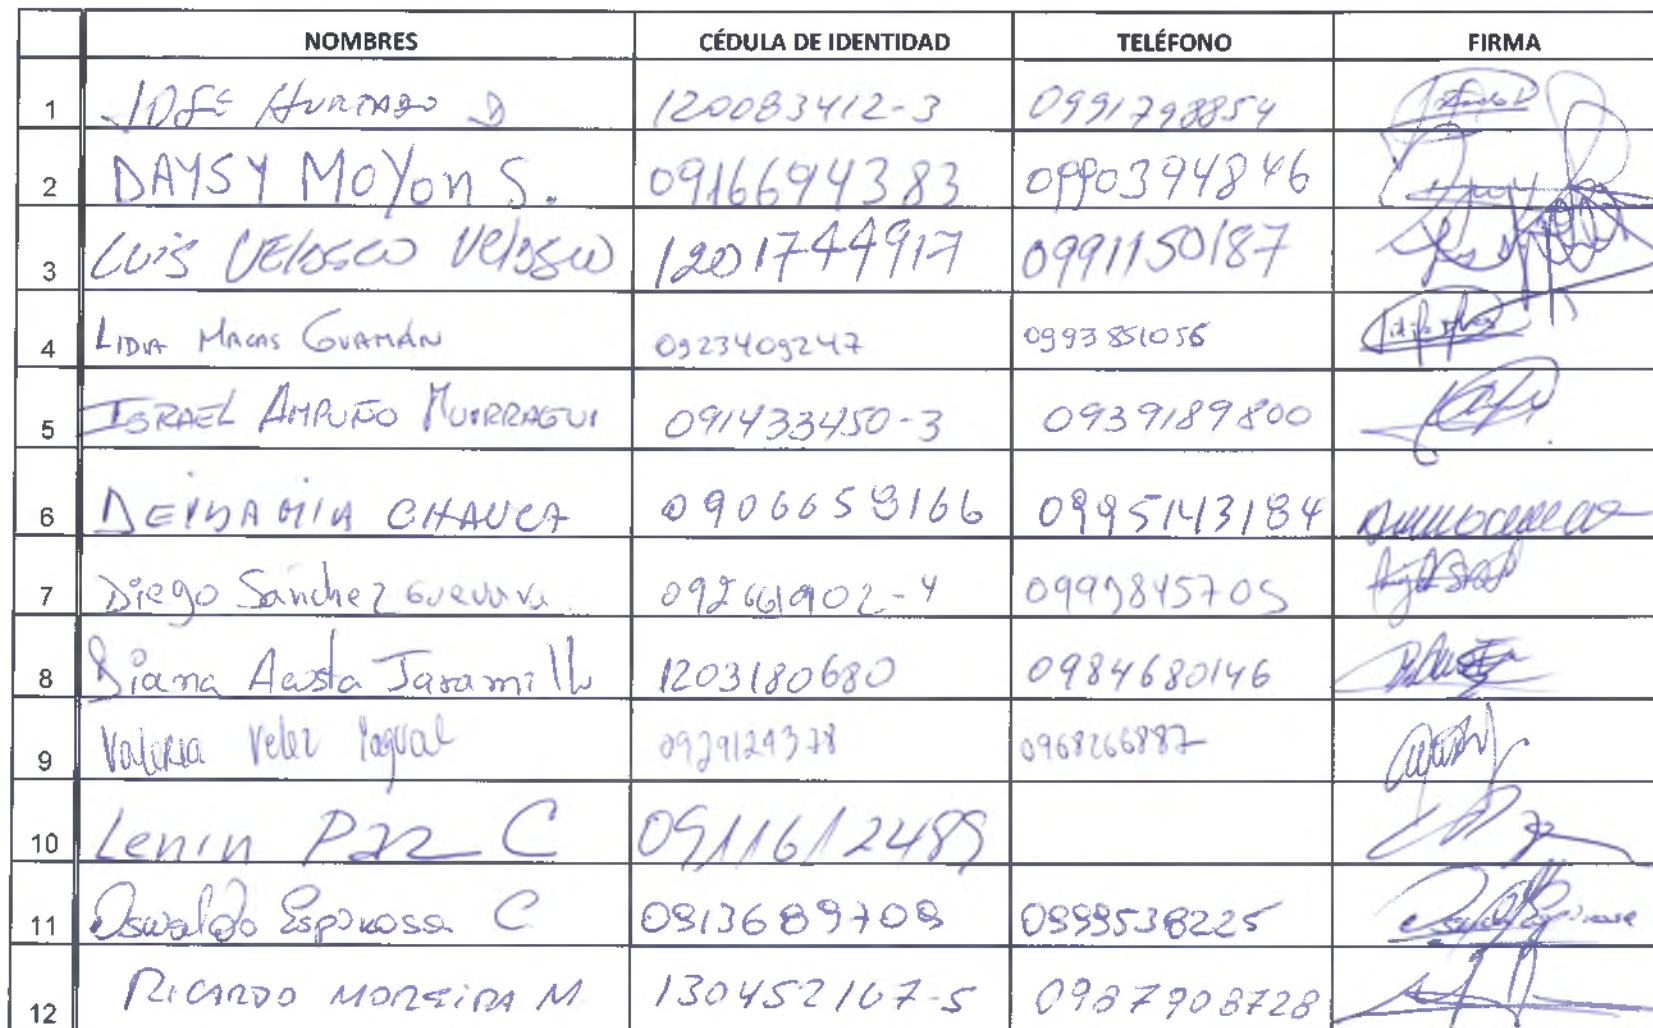 NOMBRES CÉDULA DE IDENTIDAD TELÉFONO FIRMA
1 JOSE HURTADO D 120083412-3 0991798854
2 DAYSY MOYON S. 0916694383 0990394846
3 LUIS VELASCO VELASCO 1201744917 0991150187
4 LIDIA MACAS GUAMÁN 0923409247 0993851056
5 ISRAEL AMPUÑO MUIRRAGUI 091433450-3 0939189800
6 DEIDAMIA CHAUCA 0906659166 0995143184
7 Diego Sánchez Guevara 092661902-4 0999845705
8 Diana Acosta Jaramillo 1203180680 0984680146
9 Valeria Velez Yagual 0929124378 0968266887
10 Lenin Paz C 0911612489
11 Oswaldo Espinosa C 0913689709 0999538225
12 RICARDO MOREIRA M 130452167-5 0987908728